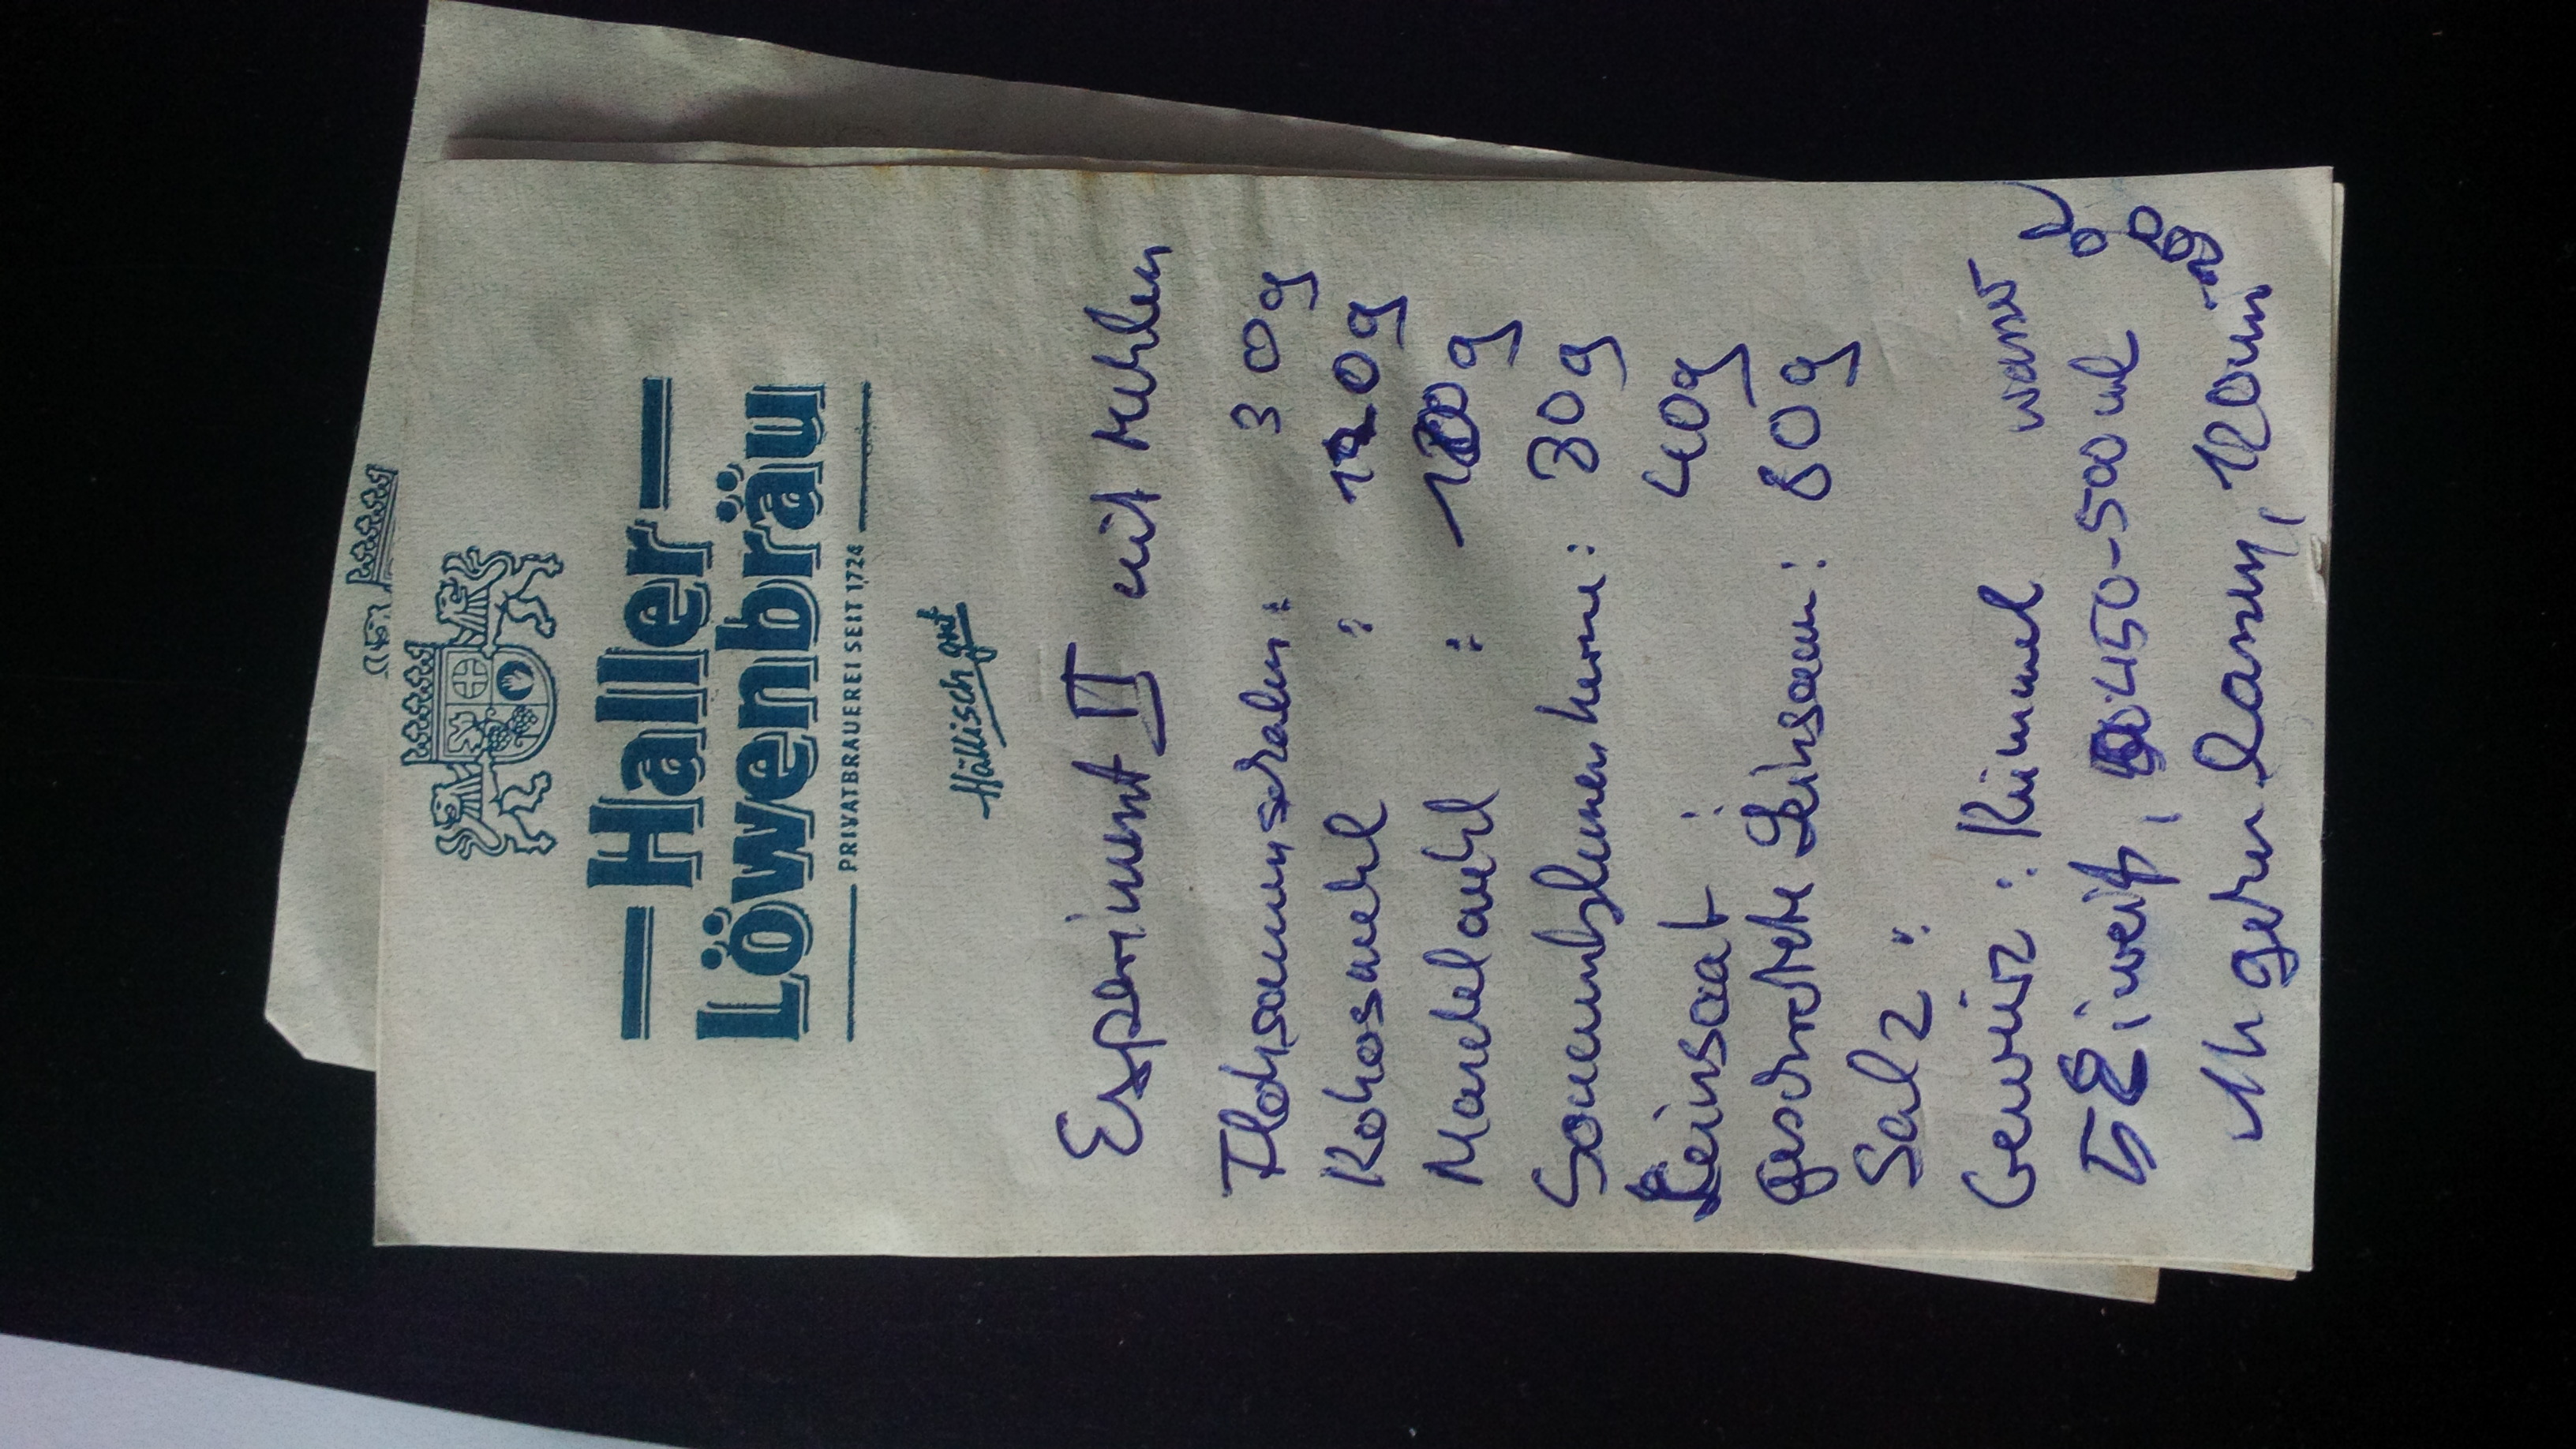 Haller
Löwenbräu
PRIVATBRAUEREI SEIT 1724
Hällisch gut
Experiment II mit Mehlen
Flohsamenschalen: 30g
Kokosmehl : 120g
Mandelmehl : 100g
Sonnenblumenkerne: 30g
Leinsaat : 40g
geschrotete Leinsam: 80g
Salz :
Gewürz: Kümmel
5 Eiweiß, 450-500 ml Wasser
120min